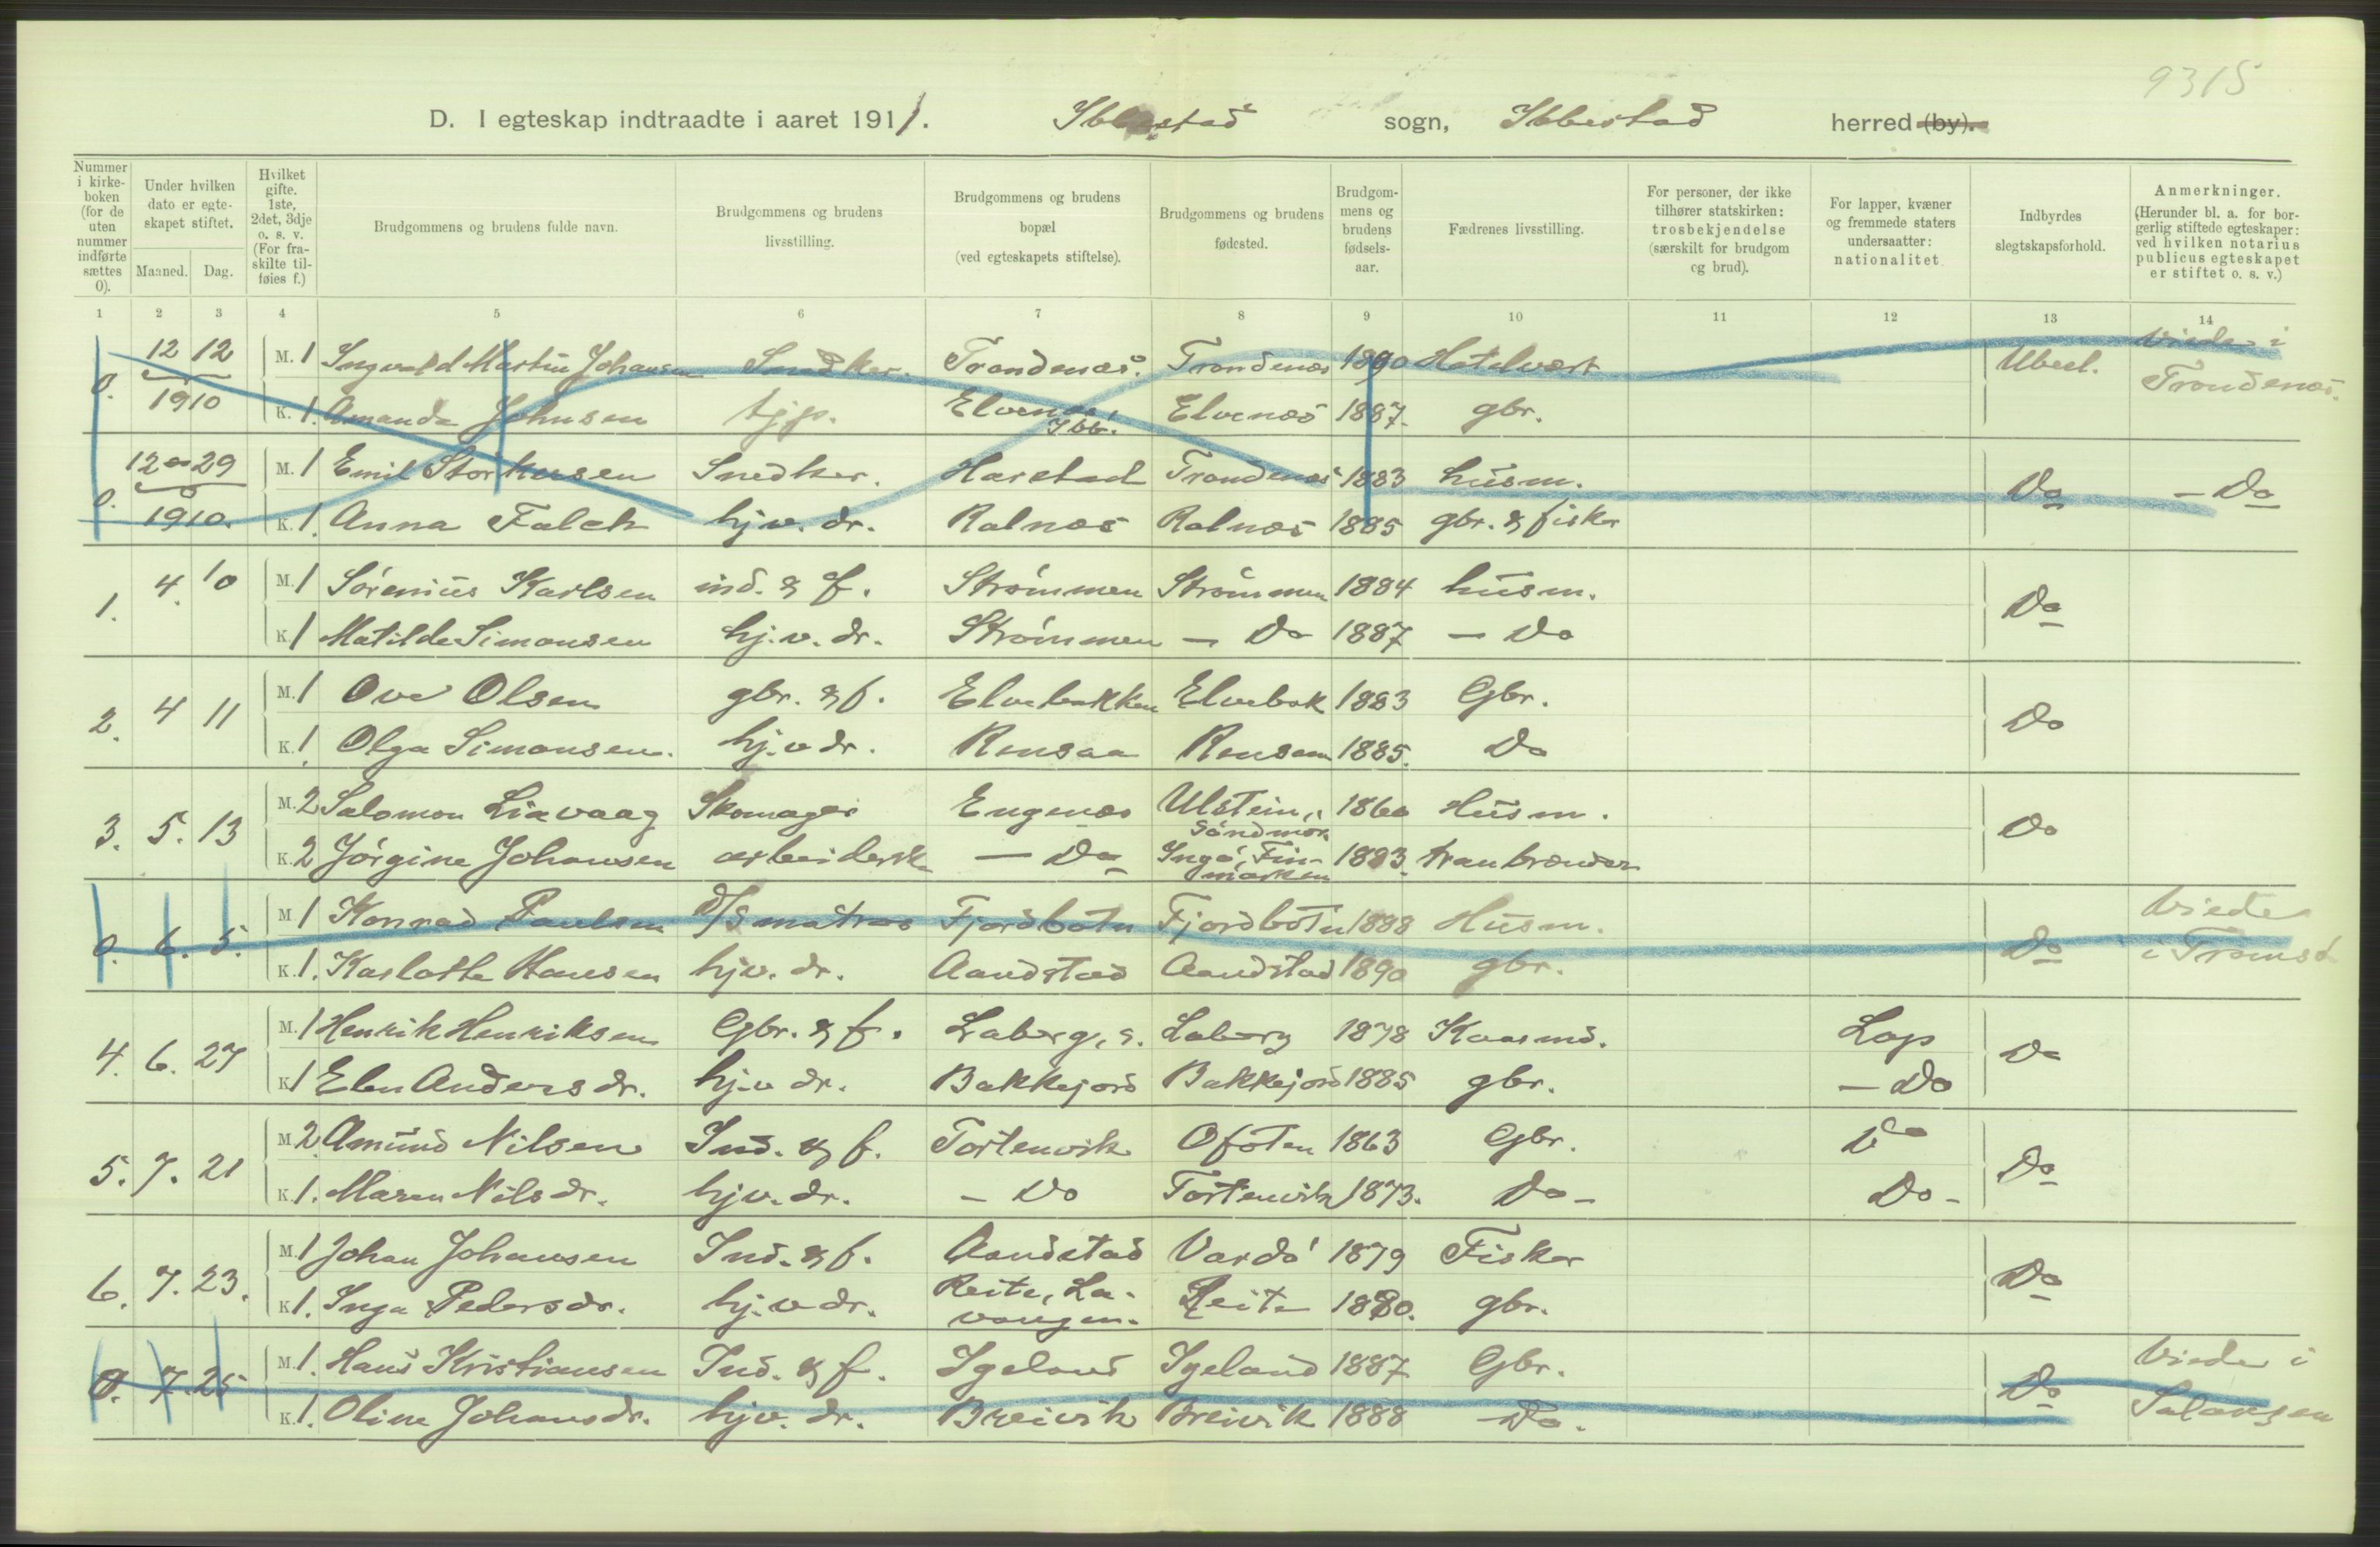 9315
D. I egteskap indtraadte i aaret 1911. Ibbestad sogn, Ibbestad herred (by).
Nummer i kirkeboken (for de uten nummer indførte sættes 0).
Under hvilken dato er egteskapet stiftet.
Maaned. Dag.
Hvilket gifte. 1ste, 2det, 3dje o. s. v. (For fraskilte tilføies f.)
Brudgommens og brudens fulde navn.
Brudgommens og brudens livsstilling.
Brudgommens og brudens bopæl (ved egteskapets stiftelse).
Brudgommens og brudens fødested.
Brudgommens og brudens fødselsaar.
Fædrenes livsstilling.
For personer, der ikke tilhører statskirken: trosbekjendelse (særskilt for brudgom og brud).
For lapper, kvæner og fremmede staters undersaatter: nationalitet
Indbyrdes slegtskapsforhold.
Anmerkninger. (Herunder bl. a. for borgerlig stiftede egteskaper: ved hvilken notarius publicus egteskapet er stiftet o. s. v.)
1 2 3 4 5 6 7 8 9 10 11 12 13 14
0. 12 12 1910 M. 1 Ingvald Martin Johansen Snedker. Trondenæs. Trondenæs 1890 Hotelvært Ubesl. Viede i Trondenæs.
K. 1. Amanda Johnsen tjp. Elvenæs, Ibb. Elvenæs 1887. gbr.
0. 12 29 1910. M. 1 Emil Storhusen Snedker. Harstad Trondenæs 1883 husm. Do - Do
K. 1. Anna Falch hjv. dr. Rolnæs Rolnæs 1885 gbr. & fisker
1. 4. 10 M. 1 Sørenius Karlsen ind. & f. Strømmen Strømmen 1884 husm. Do
K. 1 Matilde Simonsen hj. v. dr. Strømmen - Do 1887 - Do
2. 4 11 M. 1 Ove Olsen gbr. & f. Elvebakken Elvebak 1883 Gbr. Do
K. 1. Olga Simonsen. hj. v dr. Rensaa Rensaa 1885. Do
3. 5. 13 M. 2 Salomon Liavaag Skomager Engenæs Ulstein, Søndmør 1860 Husm. Do
K. 2 Jørgine Johansen arbeidersk - Do Ingø, Finmarken 1883. tranbrænder
0. 6. 5. M 1 Konrad Paulsen D/S matros Fjordbotn Fjordbotn 1888 Husm. Do Viede i Tromsø
K. 1. Karlotte Hansen hjv. dr. Aandstad Aandstad 1890 gbr.
4. 6. 27 M. 1 Henrik Henriksen Gbr. & f. Laberg, s. Laberg 1878 Kaasmd. Lap Do
K 1 Elen Andersdr. hj. v dr. Bakkejord Bakkejord 1885 gbr. - Do
5. 7. 21 M 2. Amund Nilsen Ind. & f. Tortenvik Ofoten 1863 Gbr. Do Do
K. 1. Maren Nilsdr. hjv. dr. - Do Tortenvik 1873. Do - Do -
6. 7. 23. M. 1 Johan Johansen Ind. & f. Aandstad Vardø 1879 Fisker Do
K 1. Inga Pedersdr. hj. v dr. Reite, Lavangen. Reite 1880. gbr.
0. 7. 25 M. 1. Hans Kristiansen Ind. & f. Igeland Igeland 1887 Gbr. Do Viede i Salangen
K. 1. Oline Johansdr. hjv. dr. Breivik Breivik 1888 Do.